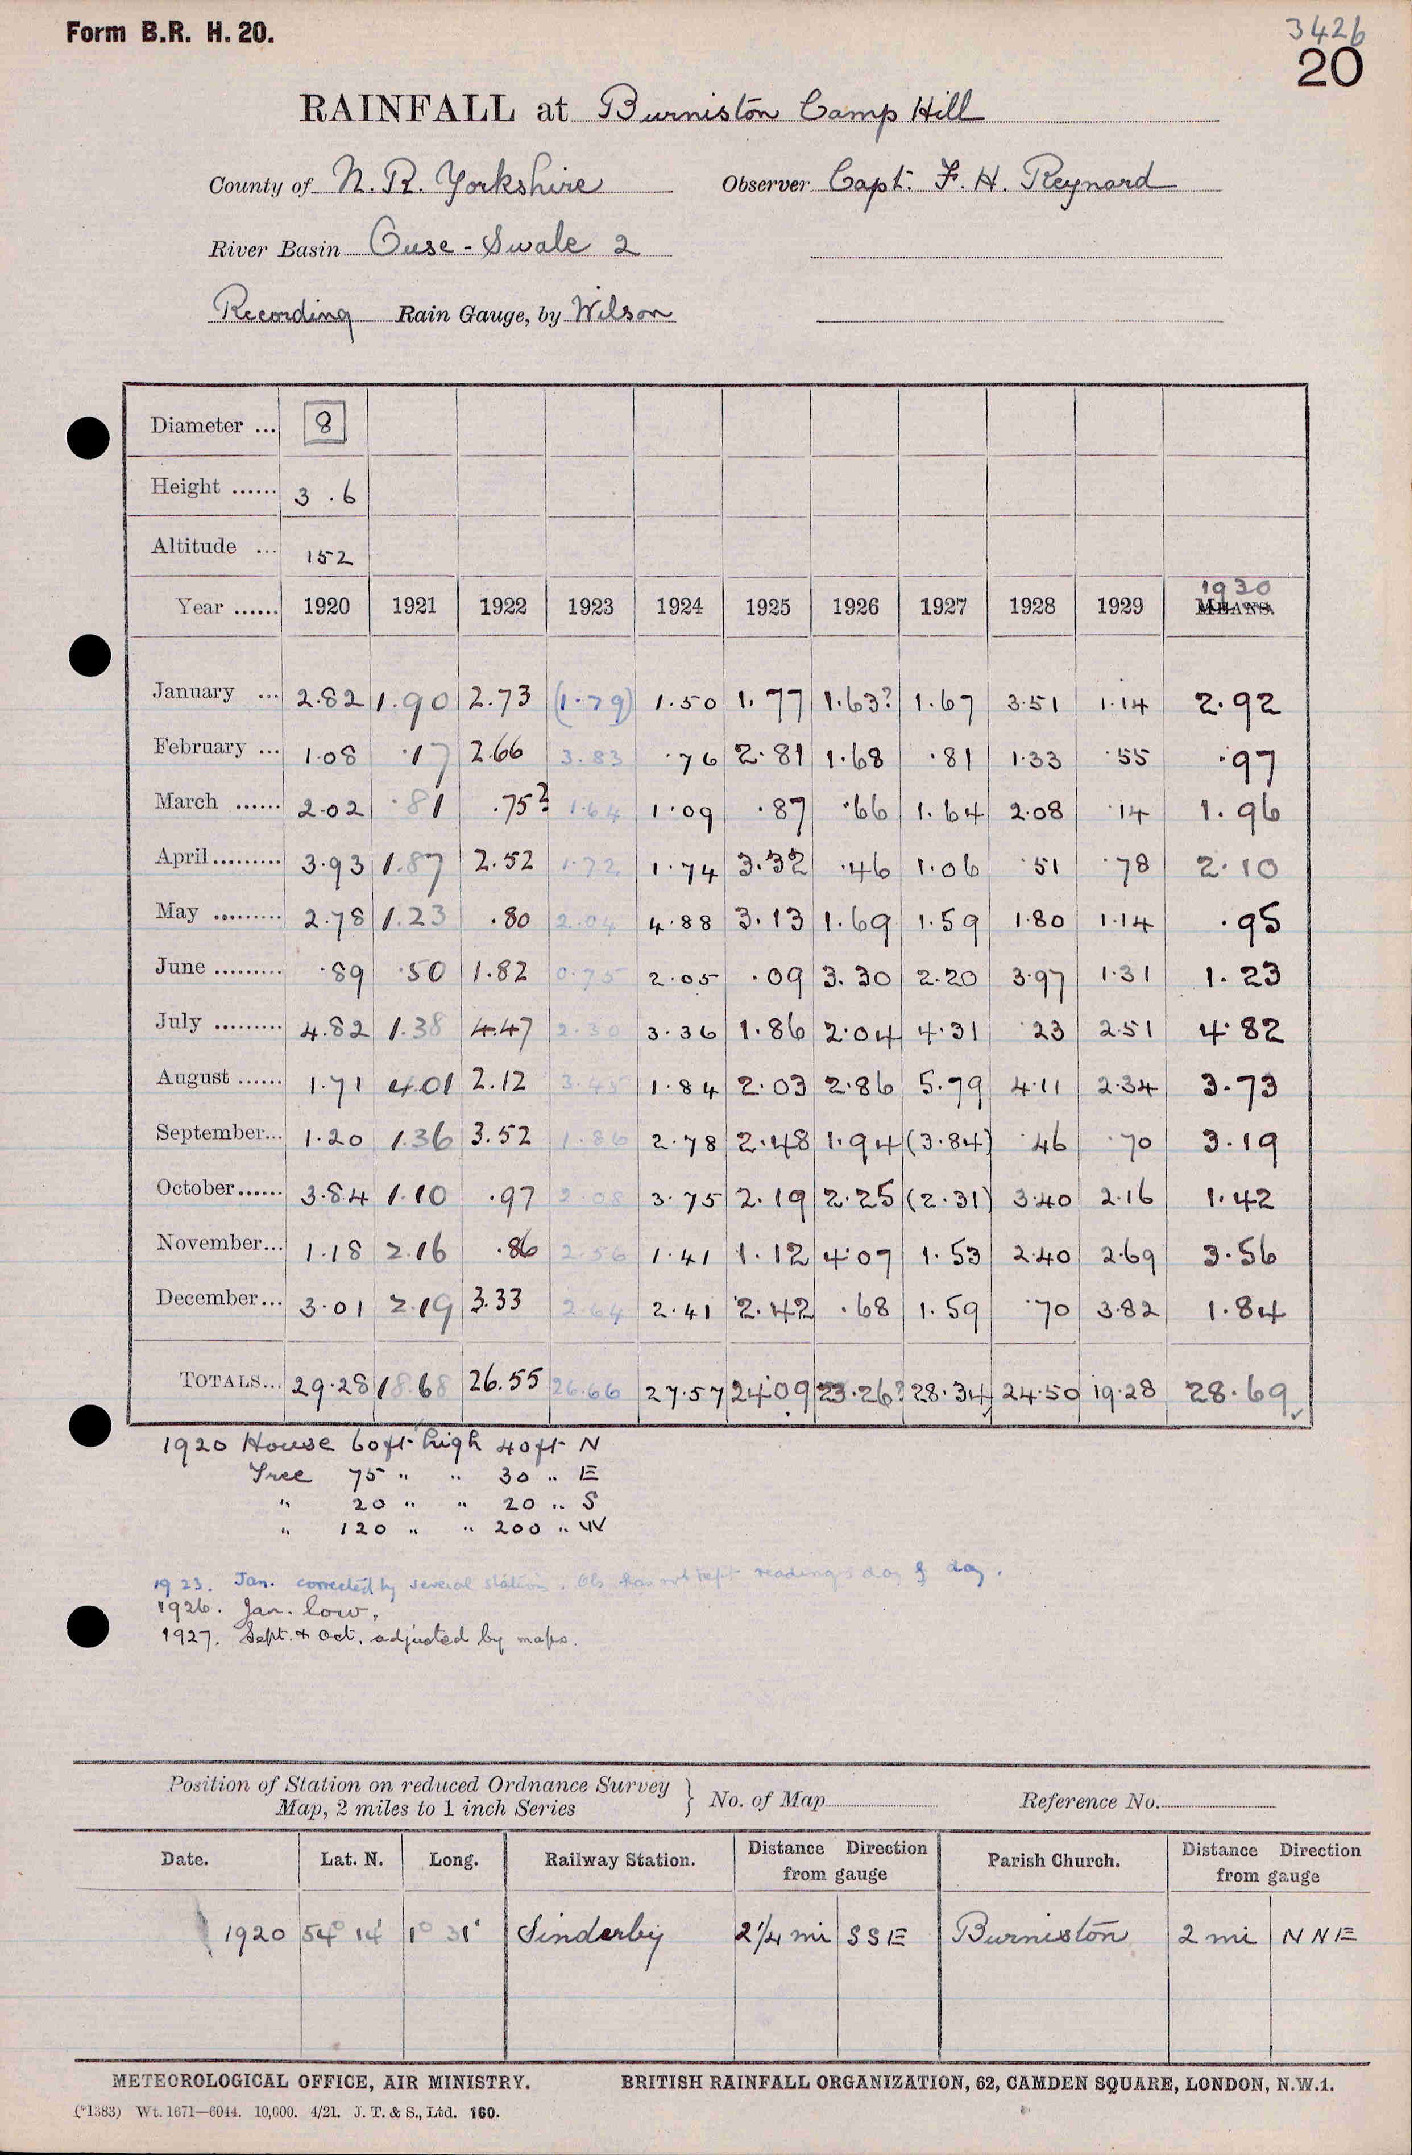 Form B.R. H. 20.
3426
20
RAINFALL at Burniston Camp Hill
County of N. R. Yorkshire Observer Capt. F. H. Reynard
River Basin Ouse - Swale 2
Recording Rain Gauge, by Wilson
Diameter ... 8
Height ...... 3 . 6
Altitude ... 152
1930
Year ...... 1920 1921 1922 1923 1924 1925 1926 1927 1928 1929 MEANS.
January ... 2.82 1.90 2.73 (1.79) 1.50 1.77 1.63? 1.67 3.51 1.14 2.92
February ... 1.08 .17 2.66 3.83 .76 2.81 1.68 .81 1.33 .55 .97
March ...... 2.02 .81 .75? 1.64 1.09 .87 .66 1.64 2.08 .14 1.96
April ......... 3.93 1.87 2.52 1.72 1.74 3.32 .46 1.06 .51 .78 2.10
May ......... 2.78 1.23 .80 2.04 4.88 3.13 1.69 1.59 1.80 1.14 .95
June ......... .89 .50 1.82 0.75 2.05 .09 3.30 2.20 3.97 1.31 1.23
July ......... 4.82 1.38 4.47 2.30 3.36 1.86 2.04 4.31 .23 2.51 4.82
August ...... 1.71 4.01 2.12 3.45 1.84 2.03 2.86 5.79 4.11 2.34 3.73
September... 1.20 1.36 3.52 1.86 2.78 2.48 1.94 (3.84) .46 .70 3.19
October...... 3.84 1.10 .97 2.08 3.75 2.19 2.25 (2.31) 3.40 2.16 1.42
November... 1.18 2.16 .86 2.56 1.41 1.12 4.07 1.53 2.40 2.69 3.56
December... 3.01 2.19 3.33 2.64 2.41 2.42 .68 1.59 .70 3.82 1.84
TOTALS... 29.28 18.68 26.55 26.66 27.57 24.09 23.26? 28.34 24.50 19.28 28.69
1920 House 60ft high 40ft N
Tree 75 " " 30 " E
" 20 " " 20 " S
" 120 " " 200 " W
1923. Jan. corrected by several stations. Obs. has not kept readings day by day.
1926. Jan. low.
1927. Sept. + Oct. adjusted by maps.
Position of Station on reduced Ordnance Survey
Map, 2 miles to 1 inch Series } No. of Map Reference No.
Date. Lat. N. Long. Railway Station. Distance Direction from gauge Parish Church. Distance Direction from gauge
1920 54° 14' 1° 31' Sinderby 2 1/4 mi SSE Burniston 2 mi NNE
METEOROLOGICAL OFFICE, AIR MINISTRY. BRITISH RAINFALL ORGANIZATION, 62, CAMDEN SQUARE, LONDON, N.W.1.
(*1383) Wt. 1671—6044. 10,000. 4/21. J. T. & S., Ltd. 160.